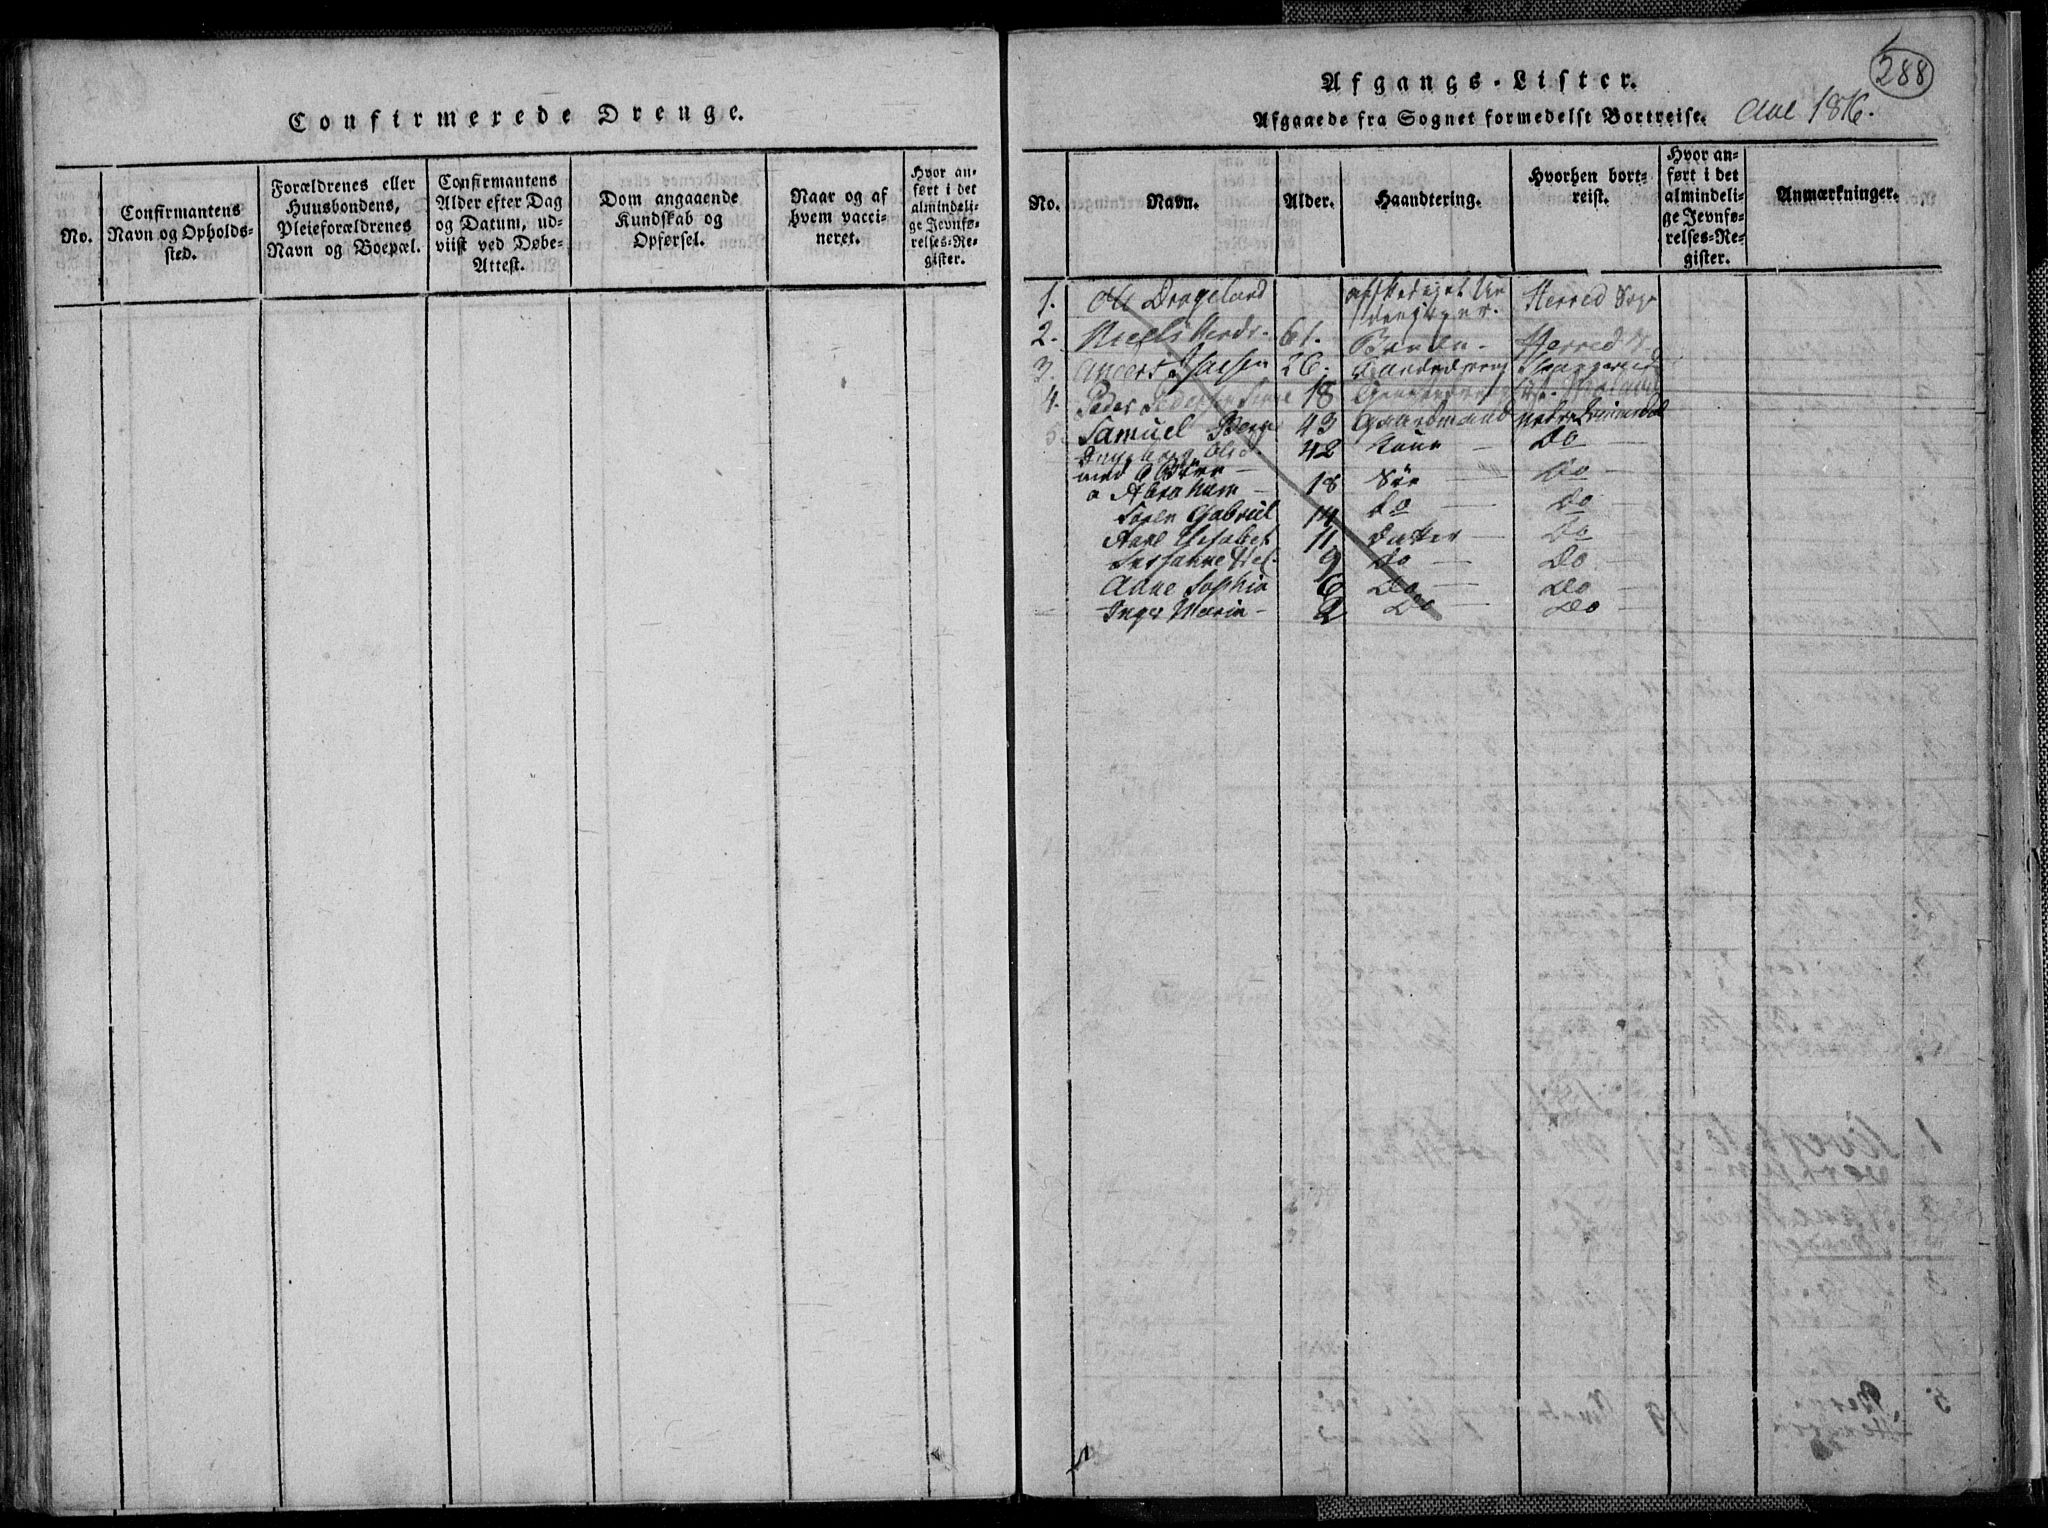 Confirmerede Drenge.
No.
Confirmantens
Navn og Opholds-
sted.
Forældrenes eller
Huusbondens,
Pleieforældrenes
Navn og Boepæl.
Confirmantens
Alder efter Dag
og Datum, ud-
viist ved Døbe-
Attest.
Dom angaaende
Kundskab og
Opførsel.
Naar og af
hvem vacci-
neret.
Hvor an-
ført i det
almindeli-
ge Jevnfø-
relses-Re-
gister.
288
Afgangs-Lister.
Afgaaede fra Sognet formedelst Bortreise.
1816.
No.
Navn.
Alder.
Haandtering.
Hvorhen bort-
reist.
Hvor an-
ført i det
almindeli-
ge Jevnfø-
relses-Re-
gister.
Anmærkninger.
1. Ole Drageland Herred Sogn
2. Niels 61. Bonde - Herred
3. Anders 26.
4. Peder Pedersen 18
5. Samuel Berge 43 Gaardmand
Ingeborg Olsd. 42 Kone Do
med 6 Börn
a Abraham 18 Sön Do
Sören Gabriel 14 do Do
Elisabet 11 Datter Do
Susanne Hel. 9 do Do
Anne Sophia 6 Do Do
Inger Maria 2 Do Do